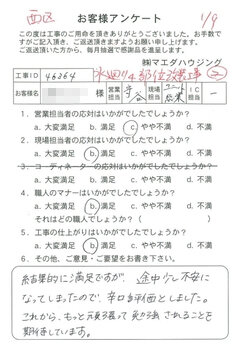 西区
お客様アンケート
1/9
この度は工事のご用命を頂きありがとうございました。お手数で
すがご記入頂き、ご返送頂きますようお願い申し上げます。
ご返送頂いた方から、毎月抽選で感謝品を進呈します。
㈱マエダハウジング
工事ID 46264 水廻り4部位改修工事
お客様名 様 営業担当 現場担当 IC担当
1. 営業担当者の応対はいかがでしたでしょうか?
a. 大変満足 b. 満足 c. やや不満 d. 不満
2. 現場担当者の応対はいかがでしたでしょうか?
a. 大変満足 b. 満足 c. やや不満 d. 不満
3. コーディネーターの応対はいかがでしたでしょうか?
a. 大変満足 b. 満足 c. やや不満 d. 不満
4. 職人のマナーはいかがでしたでしょうか?
a. 大変満足 b. 満足 c. やや不満 d. 不満
それはどの職でしょうか? ( )
5. 工事の仕上がりはいかがでしたでしょうか?
a. 大変満足 b. 満足 c. やや不満 d. 不満
6. その他、ご意見・ご要望をお書き下さい。
結果的に満足ですが、途中少し不安に
なってしまったので、辛口な評価としました。
これから、もっと頑張って 改善されることを
期待しています。